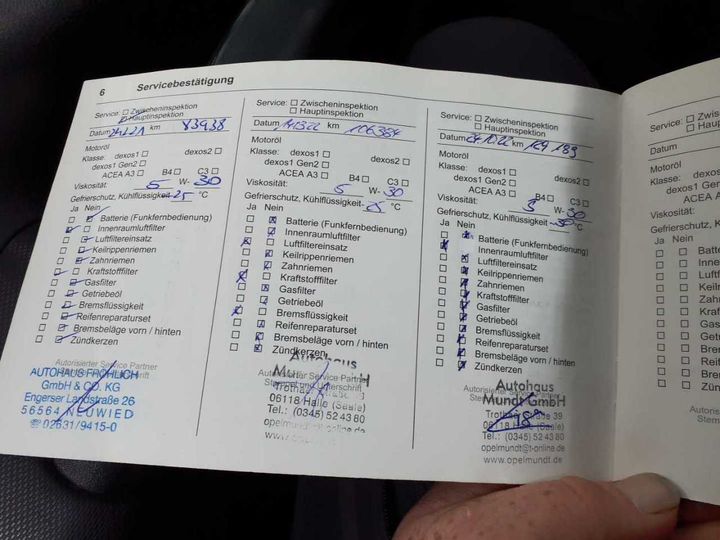 6 Servicebestätigung
Service: ☐ Zwischeninspektion
☐ Hauptinspektion
Datum km 83938
Motoröl
Klasse: dexos1 ☐ dexos2 ☐
dexos1 Gen2 ☐
ACEA A3 ☐ B4 ☐ C3 ☐
Viskosität: 5 W- 30
Gefrierschutz, Kühlflüssigkeit -25 °C
Ja Nein
Batterie (Funkfernbedienung)
Innenraumluftfilter
Luftfiltereinsatz
Keilrippenriemen
Zahnriemen
Kraftstofffilter
Gasfilter
Getriebeöl
Bremsflüssigkeit
Reifenreparaturset
Bremsbeläge vorn / hinten
Zündkerzen
Autorisierter Service Partner
AUTOHAUS FRÖHLICH
GmbH & CO. KG
Engerser Landstraße 26
56564 NEUWIED
☏ 02631/9415-0
Service: ☐ Zwischeninspektion
☐ Hauptinspektion
Datum km 106384
Motoröl
Klasse: dexos1 ☐ dexos2 ☐
dexos1 Gen2 ☐
ACEA A3 ☐ B4 ☐ C3 ☐
Viskosität: 5 W- 30
Gefrierschutz, Kühlflüssigkeit °C
Ja Nein
Batterie (Funkfernbedienung)
Innenraumluftfilter
Luftfiltereinsatz
Keilrippenriemen
Zahnriemen
Kraftstofffilter
Gasfilter
Getriebeöl
Bremsflüssigkeit
Reifenreparaturset
Bremsbeläge vorn / hinten
Zündkerzen
Autohaus
Autorisierter Service Partner
Stempel und Unterschrift
06118 Halle (Saale)
Tel.: (0345) 52 43 80
Service: ☐ Zwischeninspektion
☐ Hauptinspektion
Datum km 129 193
Motoröl
Klasse: dexos1 ☐ dexos2 ☐
dexos1 Gen2 ☐
ACEA A3 ☐ B4 ☐ C3 ☐
Viskosität: 5 W- 30
Gefrierschutz, Kühlflüssigkeit -30 °C
Ja Nein
Batterie (Funkfernbedienung)
Innenraumluftfilter
Luftfiltereinsatz
Keilrippenriemen
Zahnriemen
Kraftstofffilter
Gasfilter
Getriebeöl
Bremsflüssigkeit
Reifenreparaturset
Bremsbeläge vorn / hinten
Zündkerzen
Autohaus
Mundt GmbH
Trothaer Straße 39
06118 Halle (Saale)
Tel.: (0345) 52 43 80
opelmundt@t-online.de
www.opelmundt.de
Service: ☐
☐
Datum
Motoröl
Klasse:
dexos1
ACE
Viskosität:
Gefrierschutz, K
Ja Nein
Autorisierte
Stem